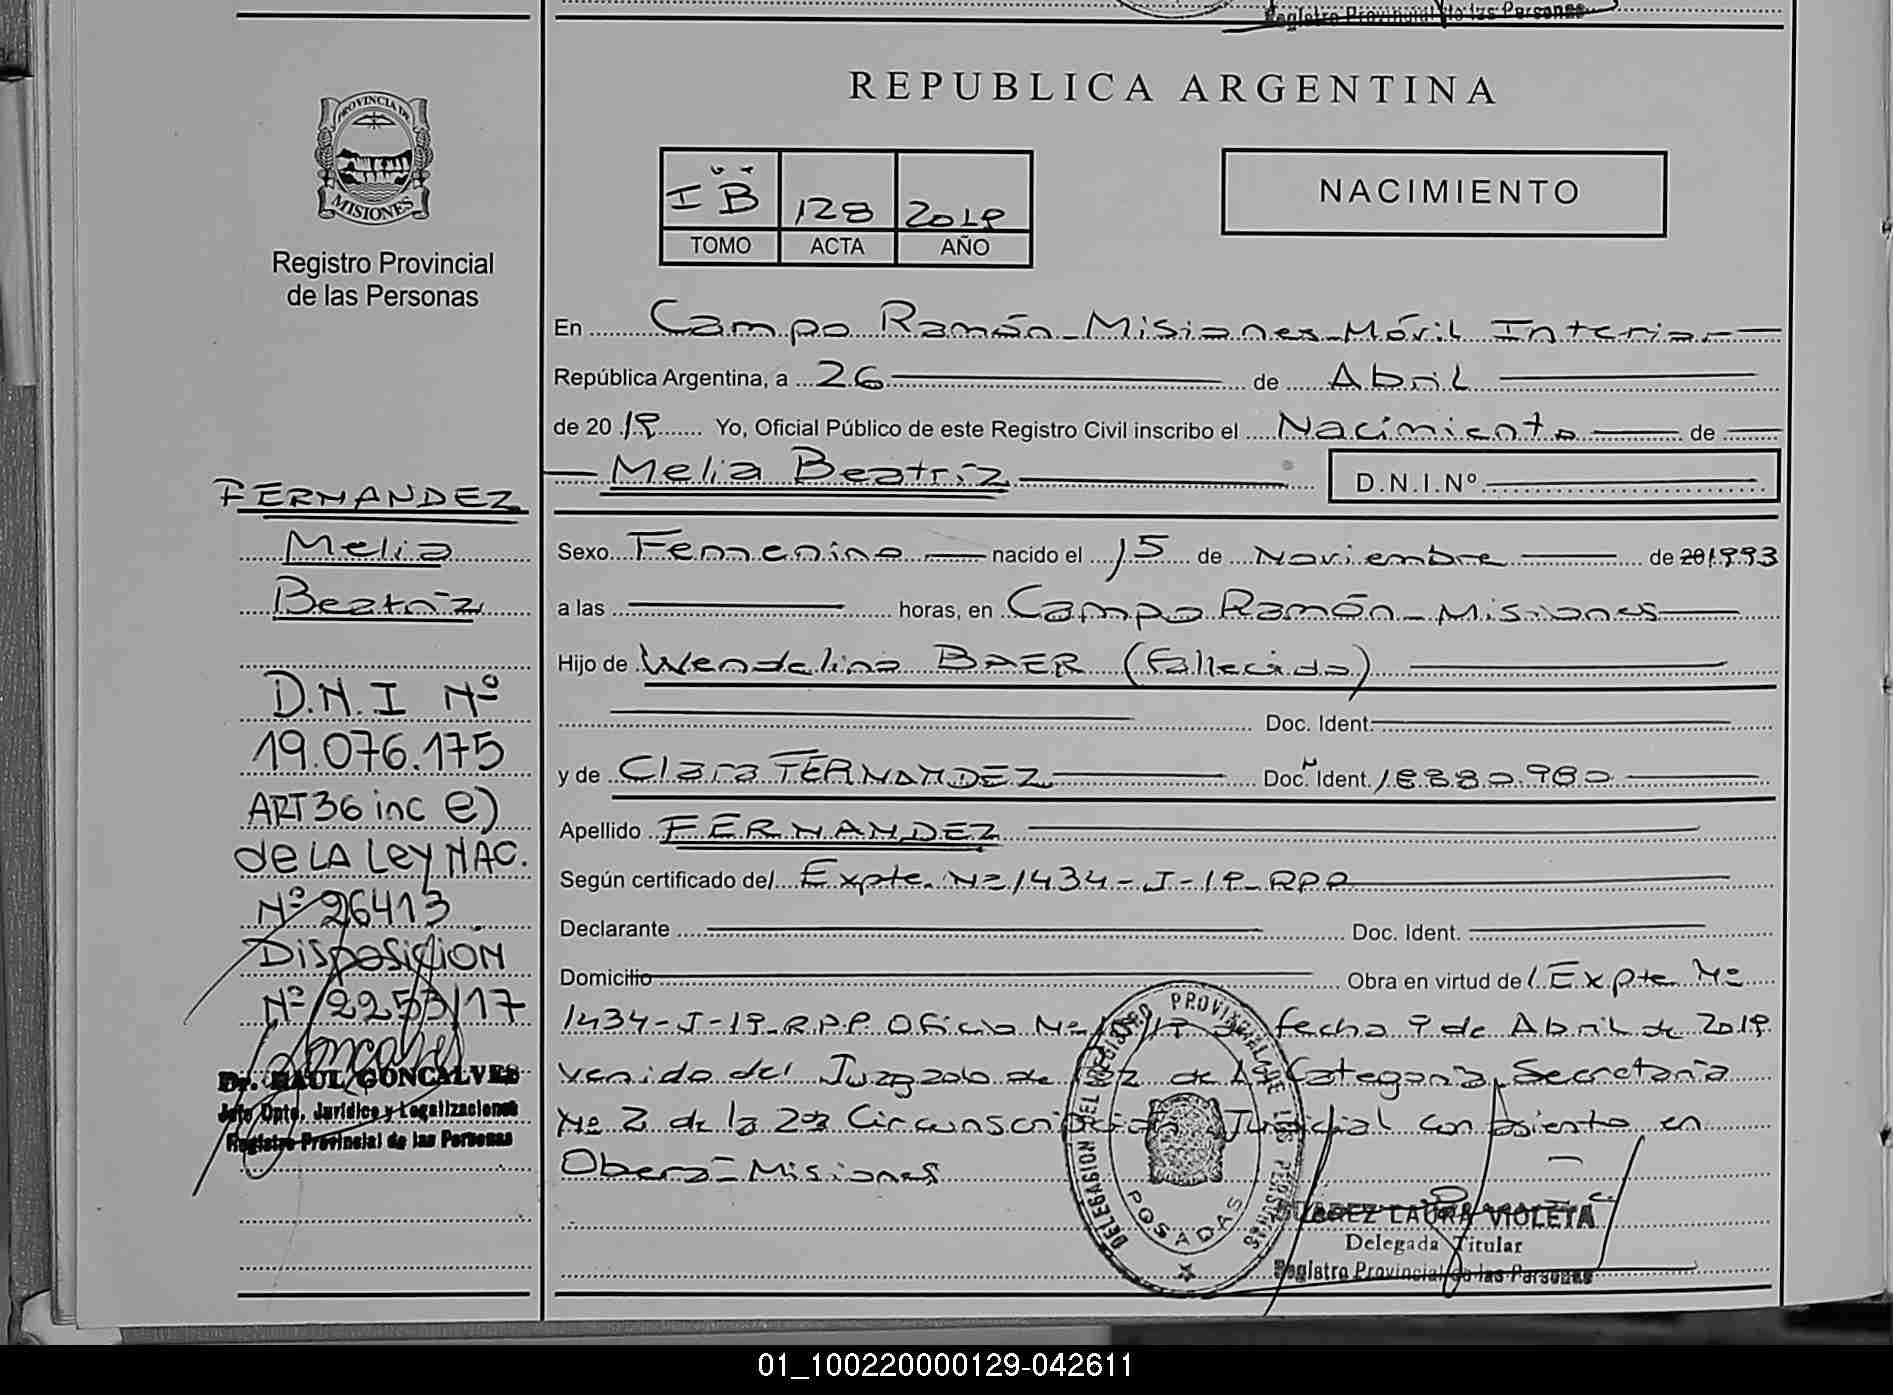 Registro Provincial de las Personas
PROVINCIA DE
MISIONES
Registro Provincial
de las Personas
REPUBLICA ARGENTINA
I B 128 2019
TOMO ACTA AÑO
NACIMIENTO
En Campo Ramón - Misiones - Móvil Interior
República Argentina, a 26 de Abril
de 20 19 Yo, Oficial Público de este Registro Civil inscribo el Nacimiento de
Melia Beatriz D.N.I.Nº
Sexo Femenino nacido el 15 de Noviembre de 1993
a las horas, en Campo Ramón - Misiones
Hijo de Wendelino BAER (Fallecido)
Doc. Ident.
y de Clara FERNANDEZ Doc. Ident. 18880.980
Apellido FERNANDEZ
Según certificado del Expte. Nº 1434-J-19-RPP
Declarante Doc. Ident.
Domicilio Obra en virtud del Expte Nº
1434-J-19-RPP Oficio Nº fecha 9 de Abril de 2019
venido del Juzgado de Paz de Categoría, Secretaría
Nº 2 de la 2da Circunscripción Judicial con asiento en
Oberá - Misiones
FERNANDEZ
Melia
Beatriz
D.N.I Nº
19.076.175
ART 36 inc e)
de LA Ley NAC.
Nº 26413
DISPOSICION
Nº 2253/17
Dr. RAUL GONCALVES
Jefe Dpto. Jurídico y Legalizaciones
Registro Provincial de las Personas
DELEGACION DEL REGISTRO PROVINCIAL DE LAS PERSONAS
POSADAS
LAURA VIOLETA
Delegada Titular
Registro Provincial de las Personas
01_100220000129-042611